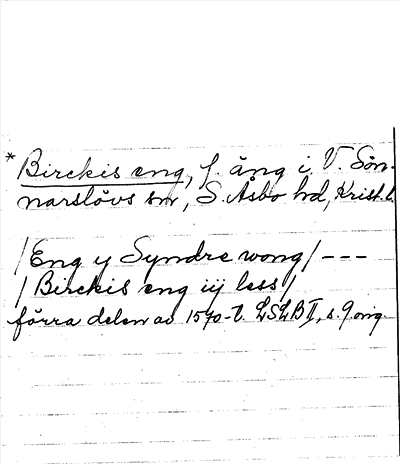 *Birckis eng, f. äng i V. Sön-
narslövs sn, S. Åsbo hd, Krist. l.
/Eng y Syndre wong/ ---
/Birckis eng iij less/
förra delen av 1570-t. LSLB II, s. 9 orig.